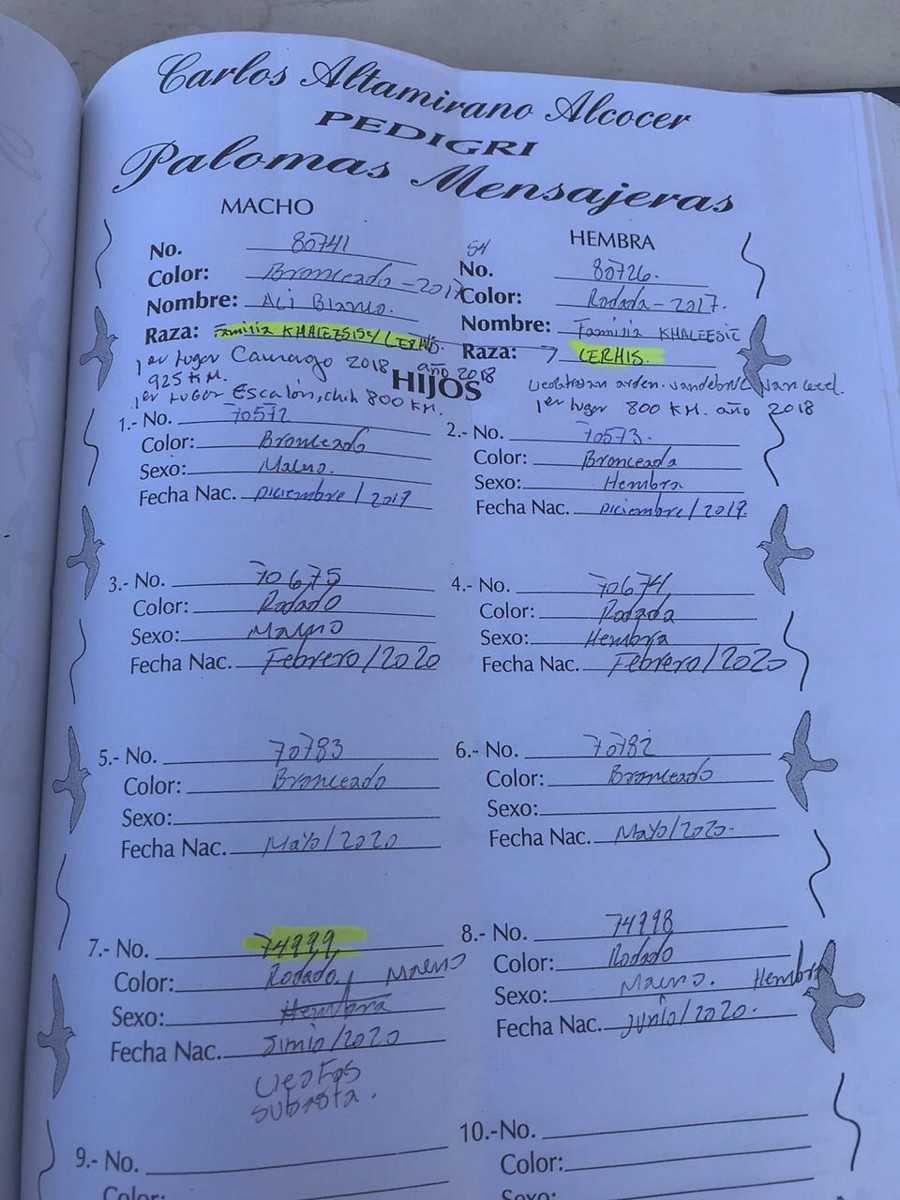 Carlos Altamirano Alcocer
PEDIGRI
Palomas Mensajeras
MACHO
No. 80741
Color: Bronceado - 2017
Nombre: Ali Blanco.
Raza: Familia KHALEESISE/LERHIS.
1er Lugar Camargo 2018
925 KM.
año 2018
1er LUGAR Escalón, chih 800 KM.
54
HEMBRA
No. 80726.
Color: Rodada - 2017.
Nombre: Familia KHALEESIE
Raza: LERHIS.
1er lugar 800 KM. año 2018
HIJOS
1.- No. 70572
Color: Bronceado
Sexo: Macho.
Fecha Nac. Diciembre / 2019
2.- No. 70573.
Color: Bronceada
Sexo: Hembra
Fecha Nac. Diciembre / 2019.
3.- No. 70675
Color: Rodado
Sexo: Macho
Fecha Nac. Febrero/2020
4.- No. 70674
Color: Rodada
Sexo: Hembra
Fecha Nac. Febrero/2020
5.- No. 70783
Color: Bronceado
Sexo:
Fecha Nac. Mayo/2020
6.- No. 70782
Color: Bronceado
Sexo:
Fecha Nac. Mayo/2020-
7.- No. 74999
Color: Rodado, Macho
Sexo: Hembra
Fecha Nac. Junio/2020
subasta.
8.- No. 74998
Color: Rodado
Sexo: Macho. Hembra
Fecha Nac. Junio/2020-
9.- No.
Color:
10.-No.
Color:
Sexo: